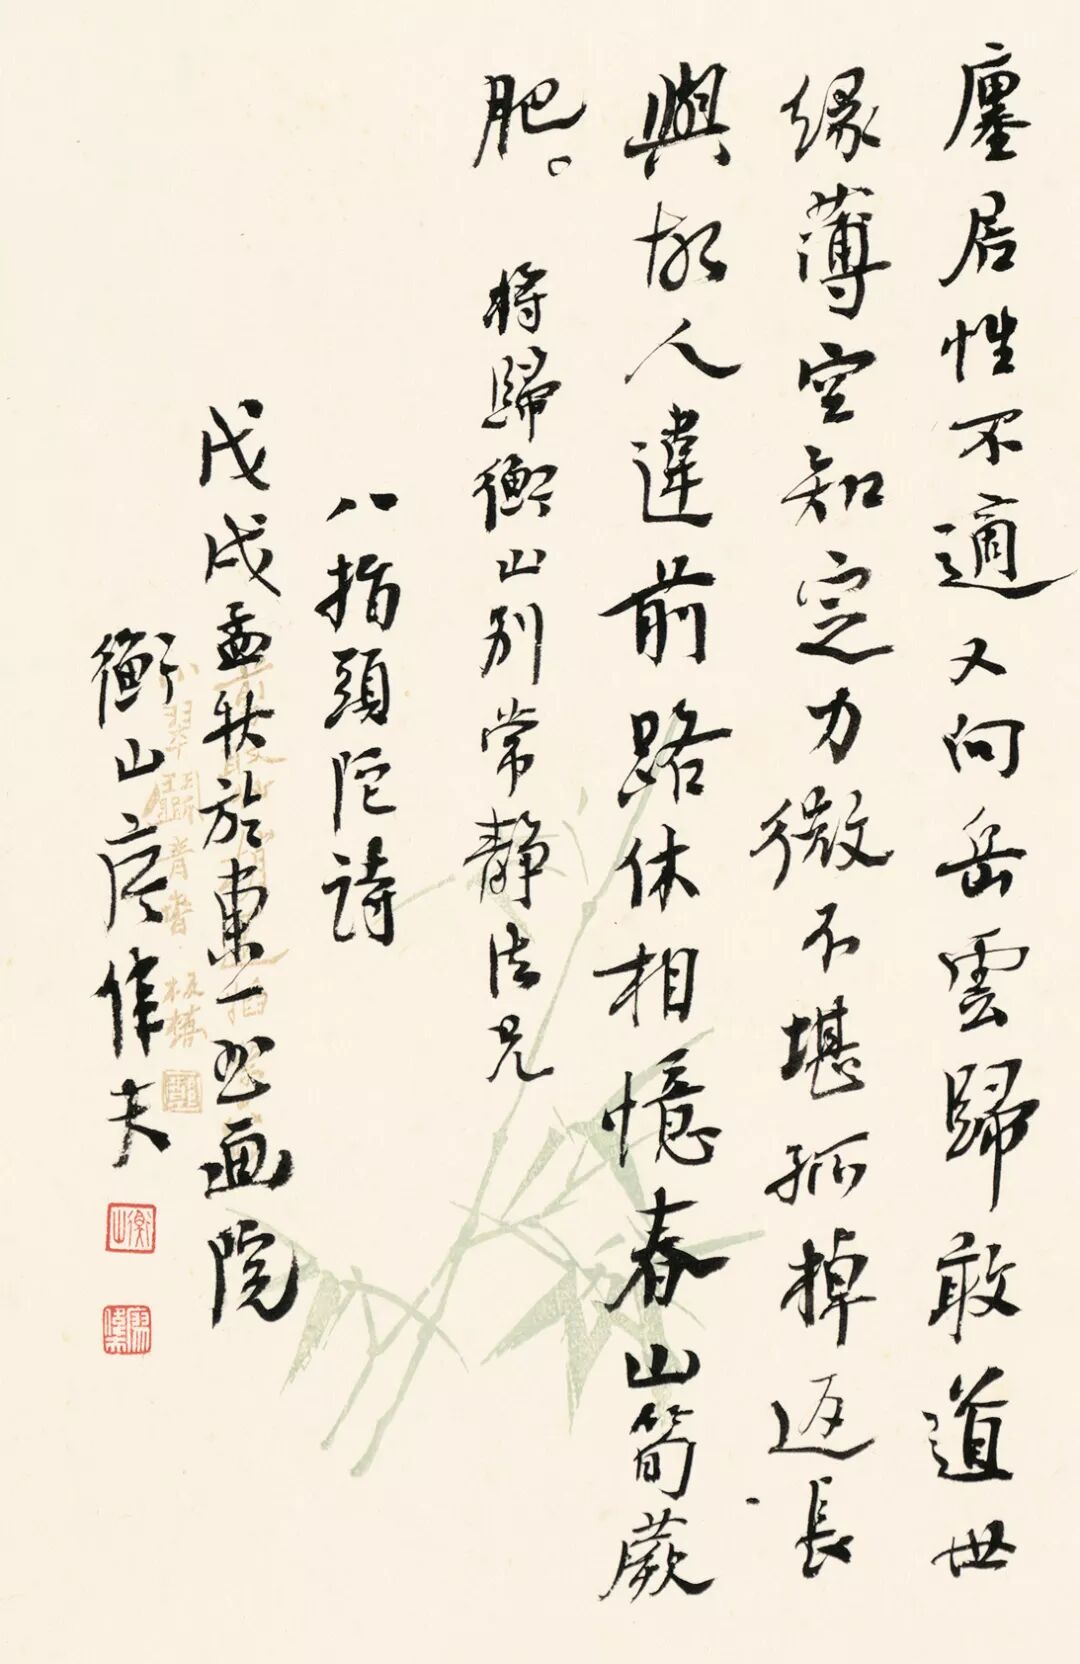 廛居性不適又向岳雲歸敢道世
緣薄空知定力微不堪孤棹返長
與故人違前路休相憶春山筍蕨
肥。
將歸衡山別常靜法兄
八指頭陀詩
戊戌孟秋於東一書画院
衡山唐偉夫
衡山